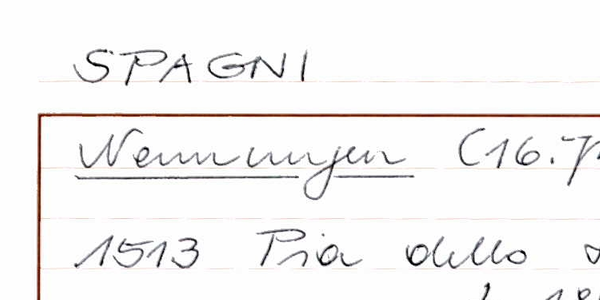 SPAGNI
Nennungen (16.
1513 Pia dello